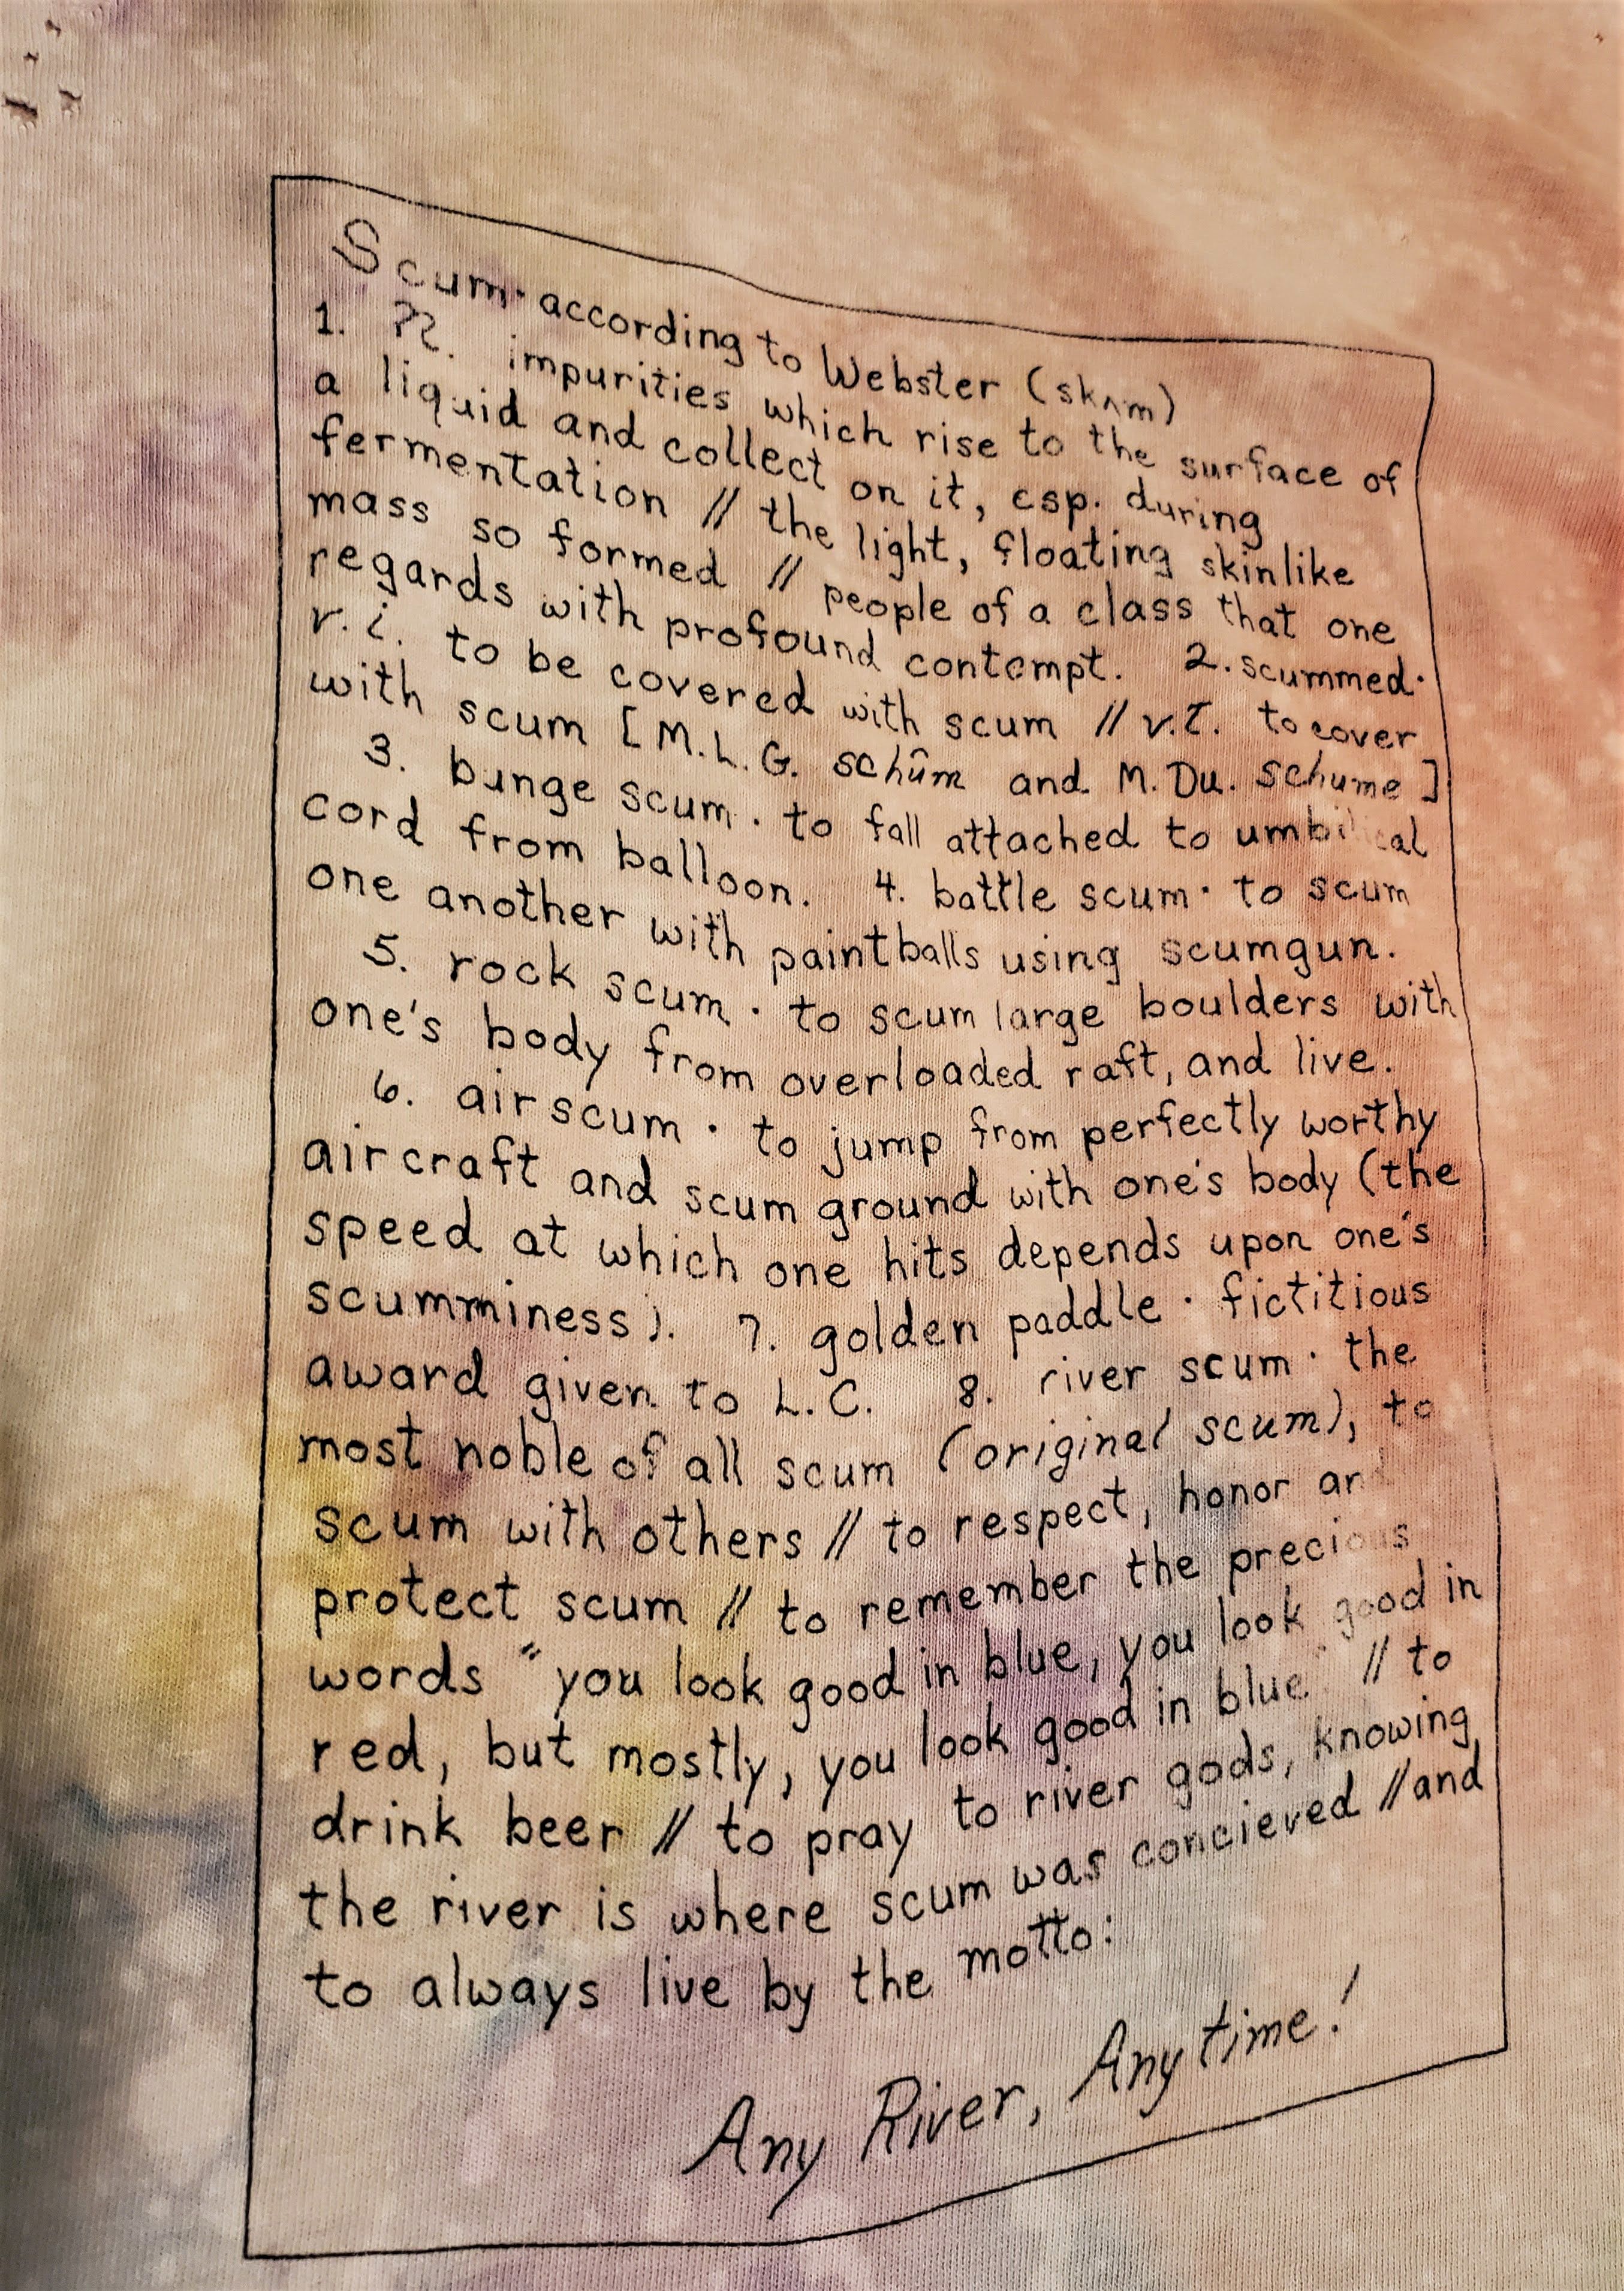 Scum· according to Webster (skʌm)
1. ??. impurities which rise to the surface of
a liquid and collect on it, esp. during
fermentation // the light, floating skinlike
mass so formed // people of a class that one
regards with profound contempt. 2. scummed·
v.i. to be covered with scum // v.t. to cover
with scum [M.L.G. schûm and M. Du. schume]
3. bunge scum · to fall attached to umbilical
cord from balloon. 4. battle scum · to scum
one another with paintballs using scumgun.
5. rock scum · to scum large boulders with
one's body from overloaded raft, and live.
6. air scum · to jump from perfectly worthy
aircraft and scum ground with one's body (the
speed at which one hits depends upon one's
scumminess). 7. golden paddle · fictitious
award given to L.C. 8. river scum · the
most noble of all scum (original scum), to
scum with others // to respect, honor and
protect scum // to remember the precious
words "you look good in blue, you look good in
red, but mostly, you look good in blue" // to
drink beer // to pray to river gods, knowing
the river is where scum was concieved // and
to always live by the motto:
Any River, Anytime!